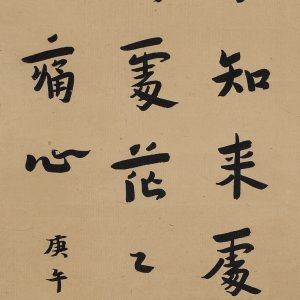 知来處
處花己
痛心
庚午